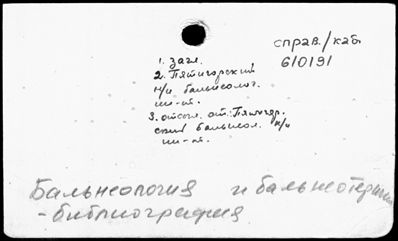 справ./каб.
6/0191
1. загл.
2. Пятигорский
н/и бальнеолог.
ин-т.
3. отсыл. от: Пятигор.
ский бальнеол. н/и
ин-т.
Бальнеология и бальнеотерапия
- библиография